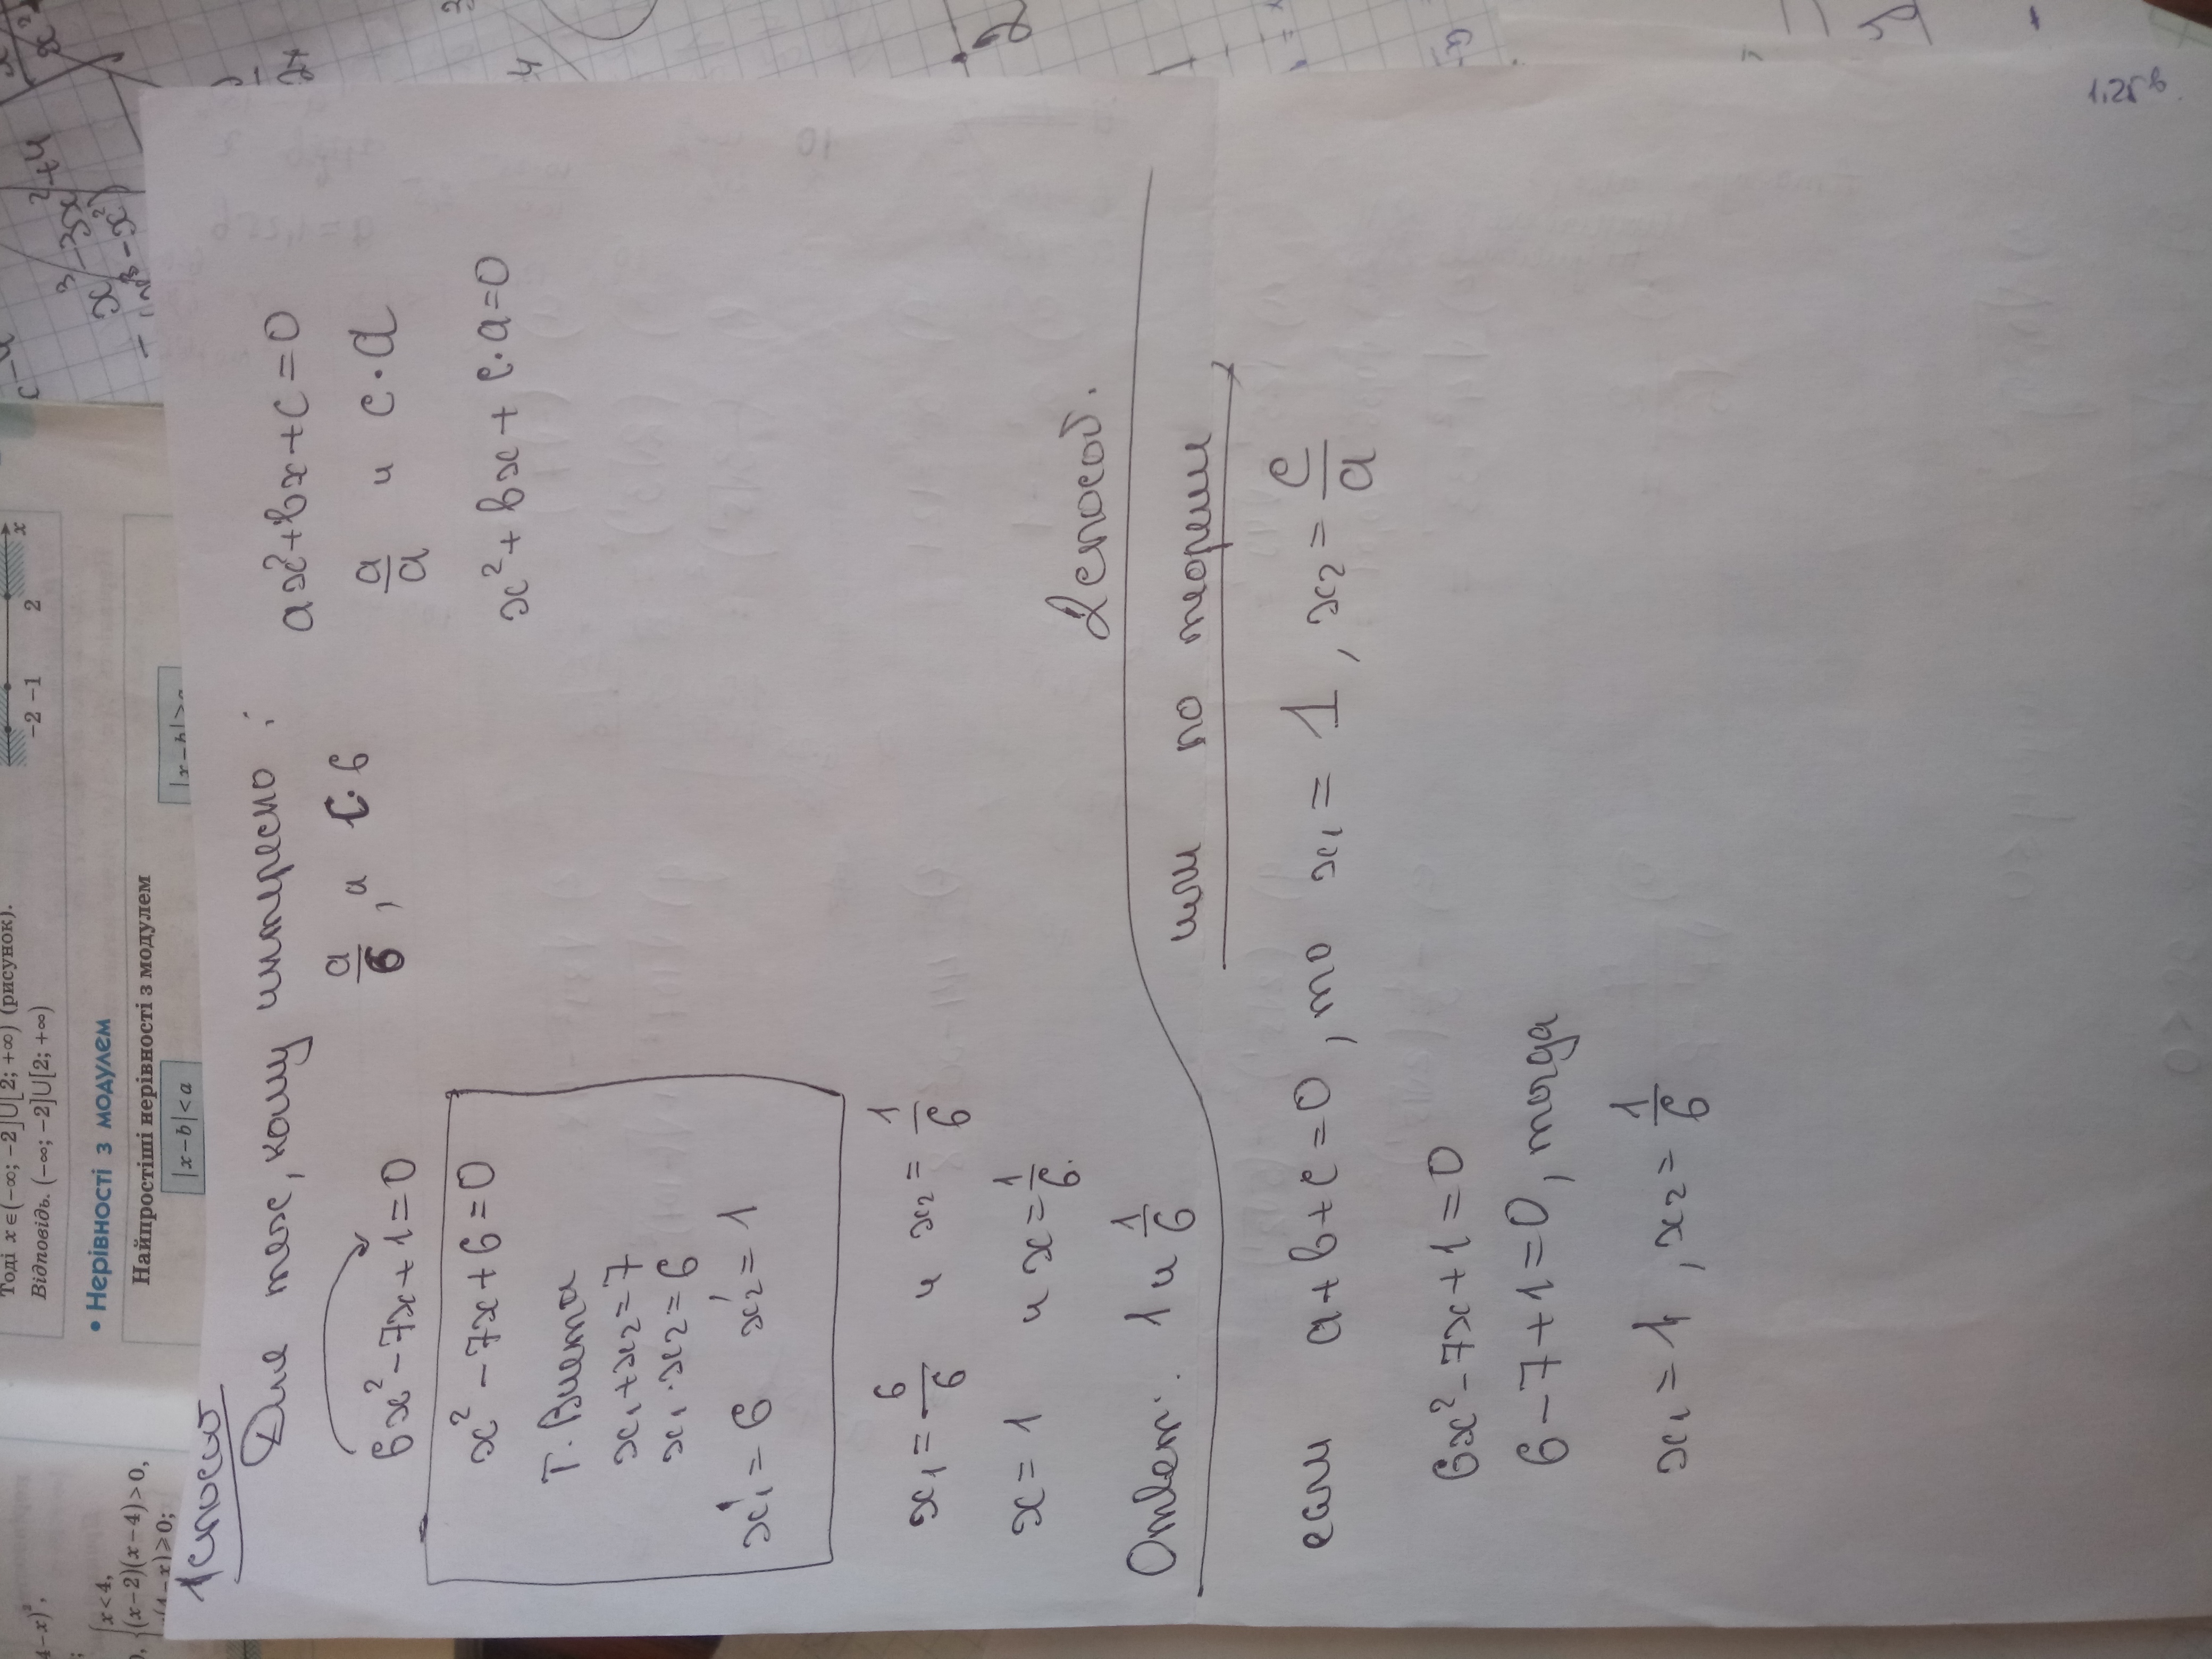 Тоді x∈(−∞; −2]∪[2; +∞) (рисунок).
Відповідь. (−∞; −2]∪[2; +∞)
−2 −1 2 x
• Нерівності з модулем
Найпростіші нерівності з модулем
|x−b|<a
|x−b|>
x<4,
(x−2)(x−4)>0,
1 способ
Для тех, кому интересно:
6x²−7x+1=0
a/6, и c·6
ax²+bx+c=0
a/a и c·a
x²+bx+c·a=0
x²−7x+6=0
Т. Виета
x₁+x₂=7
x₁·x₂=6
x₁'=6 x₂'=1
x₁=6/6 и x₂=1/6
x=1 и x=1/6.
Ответ: 1 и 1/6
2 способ.
или по теореме
если a+b+c=0, то x₁=1, x₂=c/a
6x²−7x+1=0
6−7+1=0, тогда
x₁=1, x₂=1/6